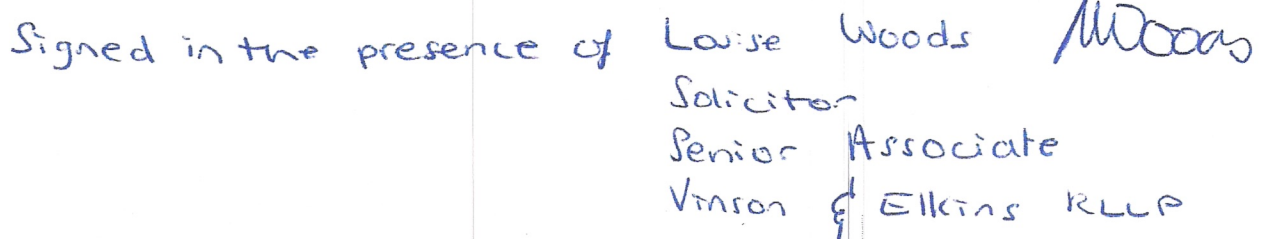 Signed in the presence of Louise Woods
Solicitor
Senior Associate
Vinson & Elkins RLLP